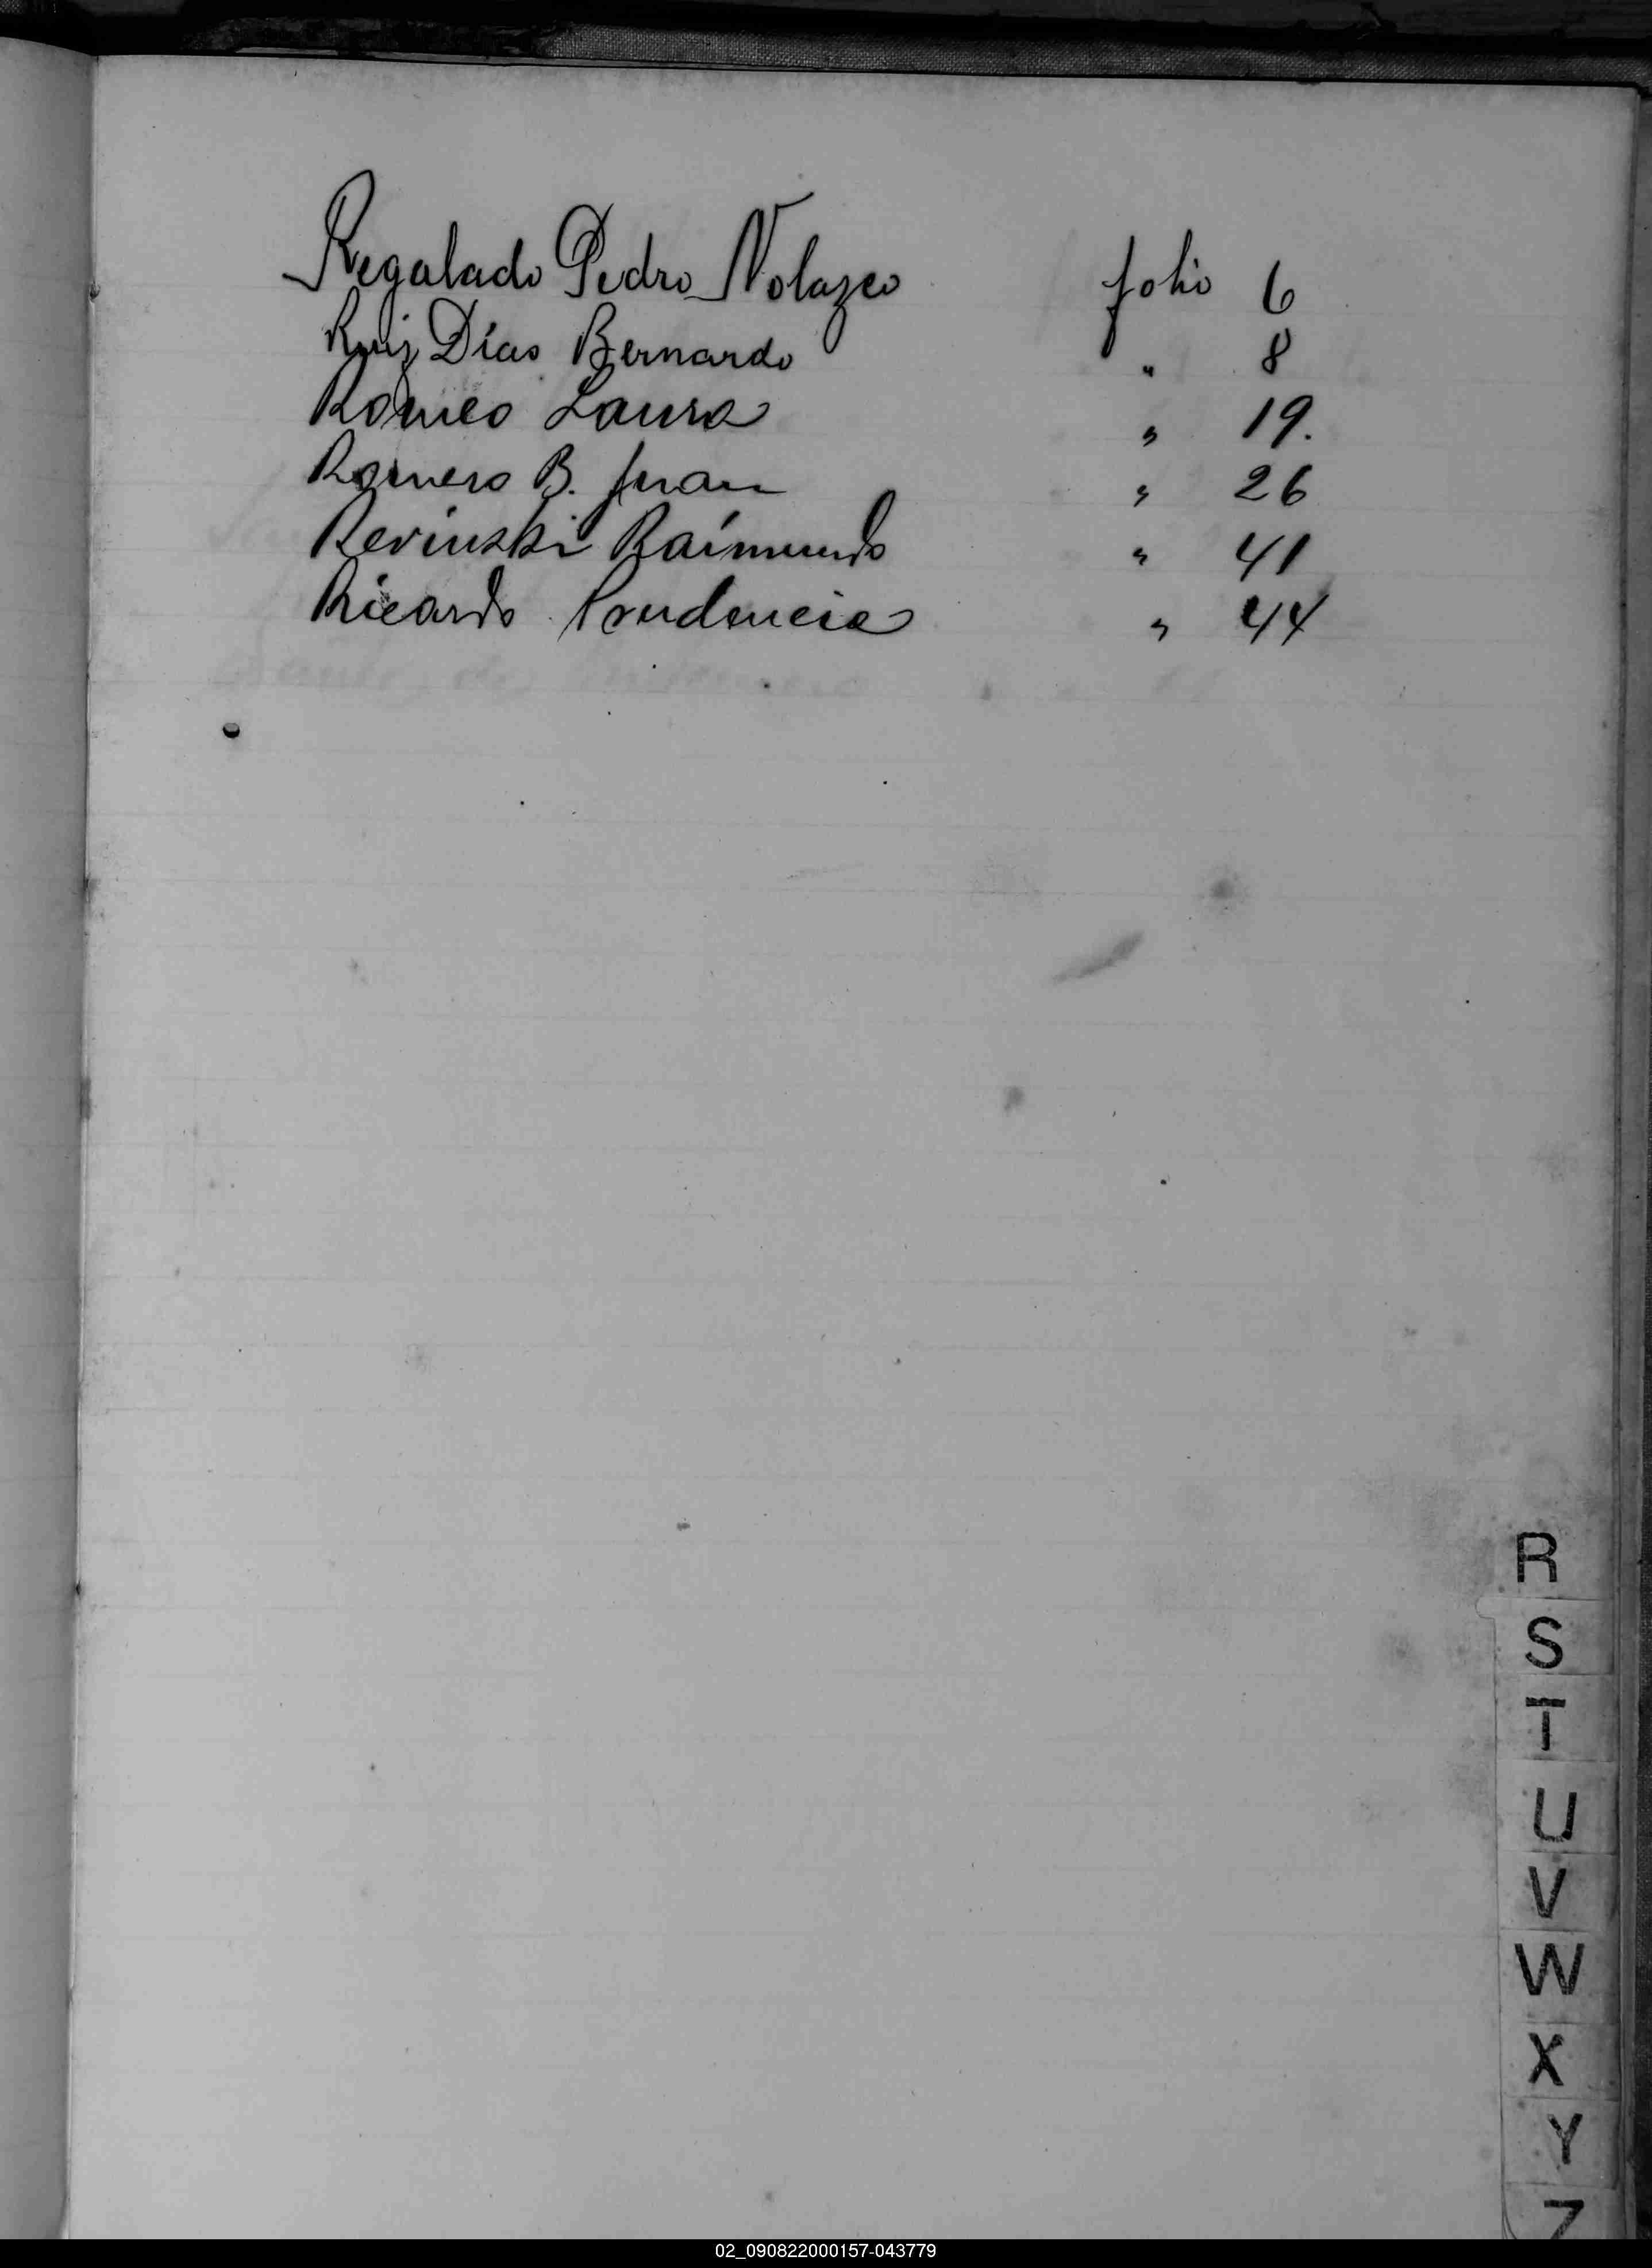 Regalado Pedro Nolazco folio 6
Ruiz Días Bernardo " 8
Romeo Laura " 19.
Romero B. Juan " 26
Revinski Raimundo " 41
Ricardo Prudencia " 44
R
S
T
U
V
W
X
Y
Z
02_090822000157-043779